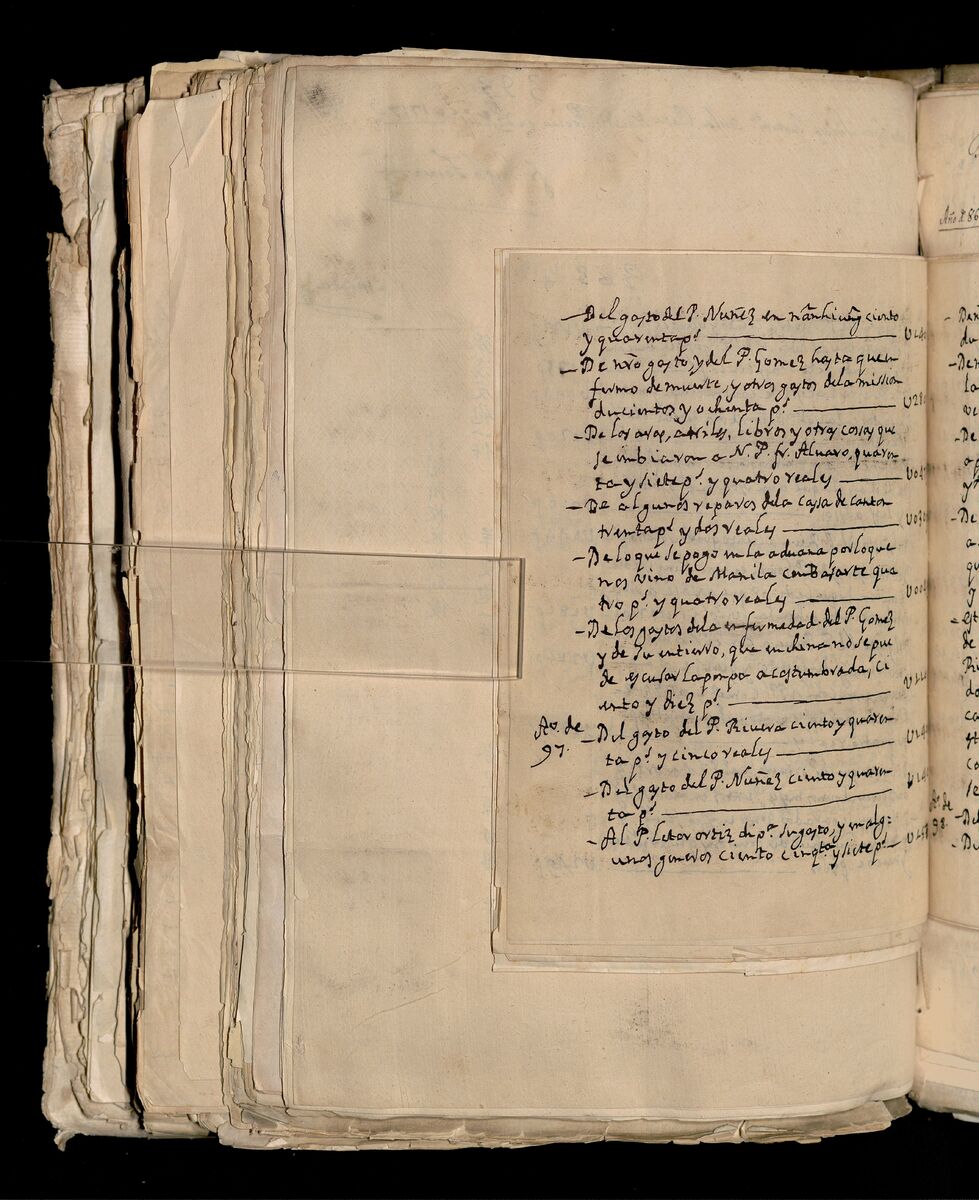 – Del gasto del P. Nuñez en nānhiung ciento
y quarenta p.s — U140
– De nr̃o gasto, y del P. Gomez hasta que en
fermo de muerte, y otros gastos dela mission
ducientos y ochenta p.s — U280
– De los aras, atriles, libros y otras cosas que
se imbiaron a N. P. fr. Alvaro, quaren
ta y siete p.s y quatro reales — U04
– De algunos reparos dela cassa de canton
trenta p.s y dos reales — U030
– De lo que se pago en la aduana por lo que
nos vino de Manila con Basarte qua
tro p.s y quatro reales — U00
– De los gastos dela enfermedad del P. Gomez
y de su entierro, que en china no se pue
de escusar la pompa acostumbrada, ci
ento y diez p.s — U11
Aº. de
97.
– Del gasto del P. Rivera ciento y quaren
ta p.s y cinco reales — U14
– Del gasto del P. Nuñez ciento y quaren
ta p.s — U14
– Al P. letor ortiz di p.a su gasto, y en alg=
unos generos ciento cinqta. y siete p.s — U157
Año 86
Aº. de
98.